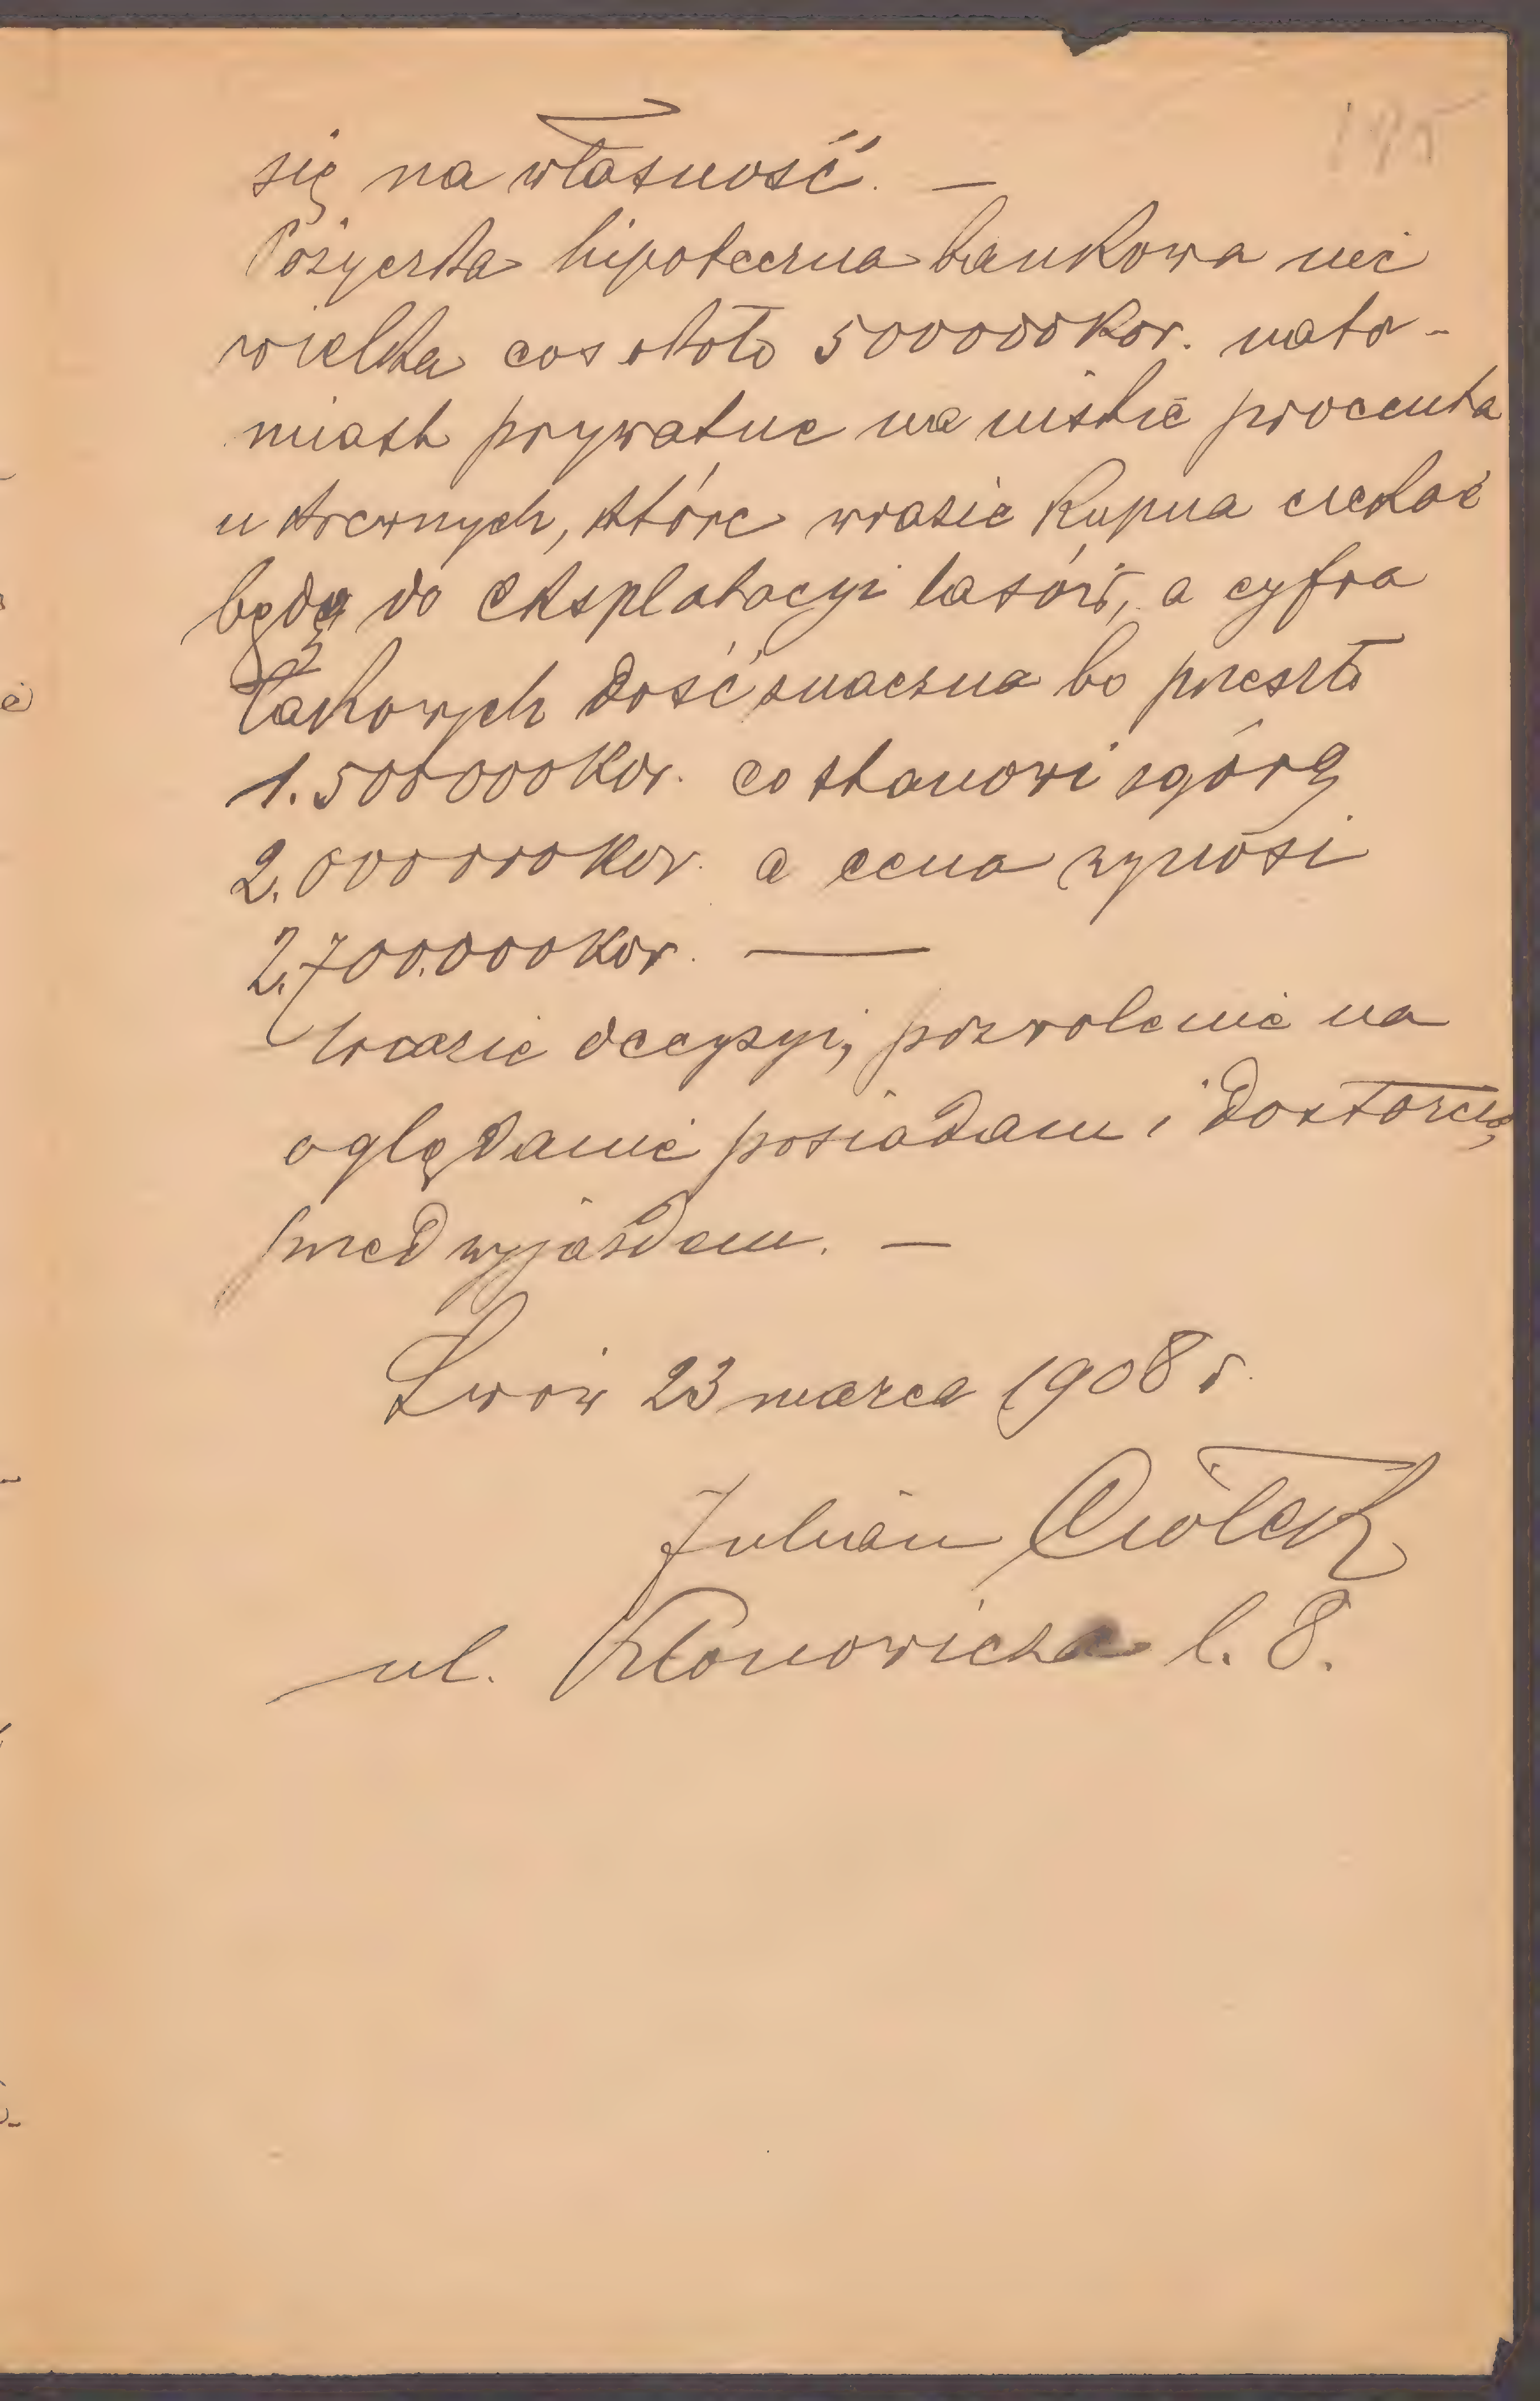 195
się na własność. —
Pożyczka hipoteczna bankowa nie
wielka coś około 500000 Kor. nato-
miast prywatne na niskie procenta
u krewnych, które wrazie Kupna czekać
będą do eksplatacyi lasów, a cyfra
takowych dość znaczna bo przeszło
1.500000 Kor. co stanowi zgórą
2.000000 Kor. a cena wynosi
2.700.000 Kor. —
Wrazie decyzyi, pozwolenie na
oglądanie posiadam i dostarczę
przed wyjazdem. —
Lwów 23 marca 1908 r.
Julian Ciołek
ul. Klonowicza l. 8.